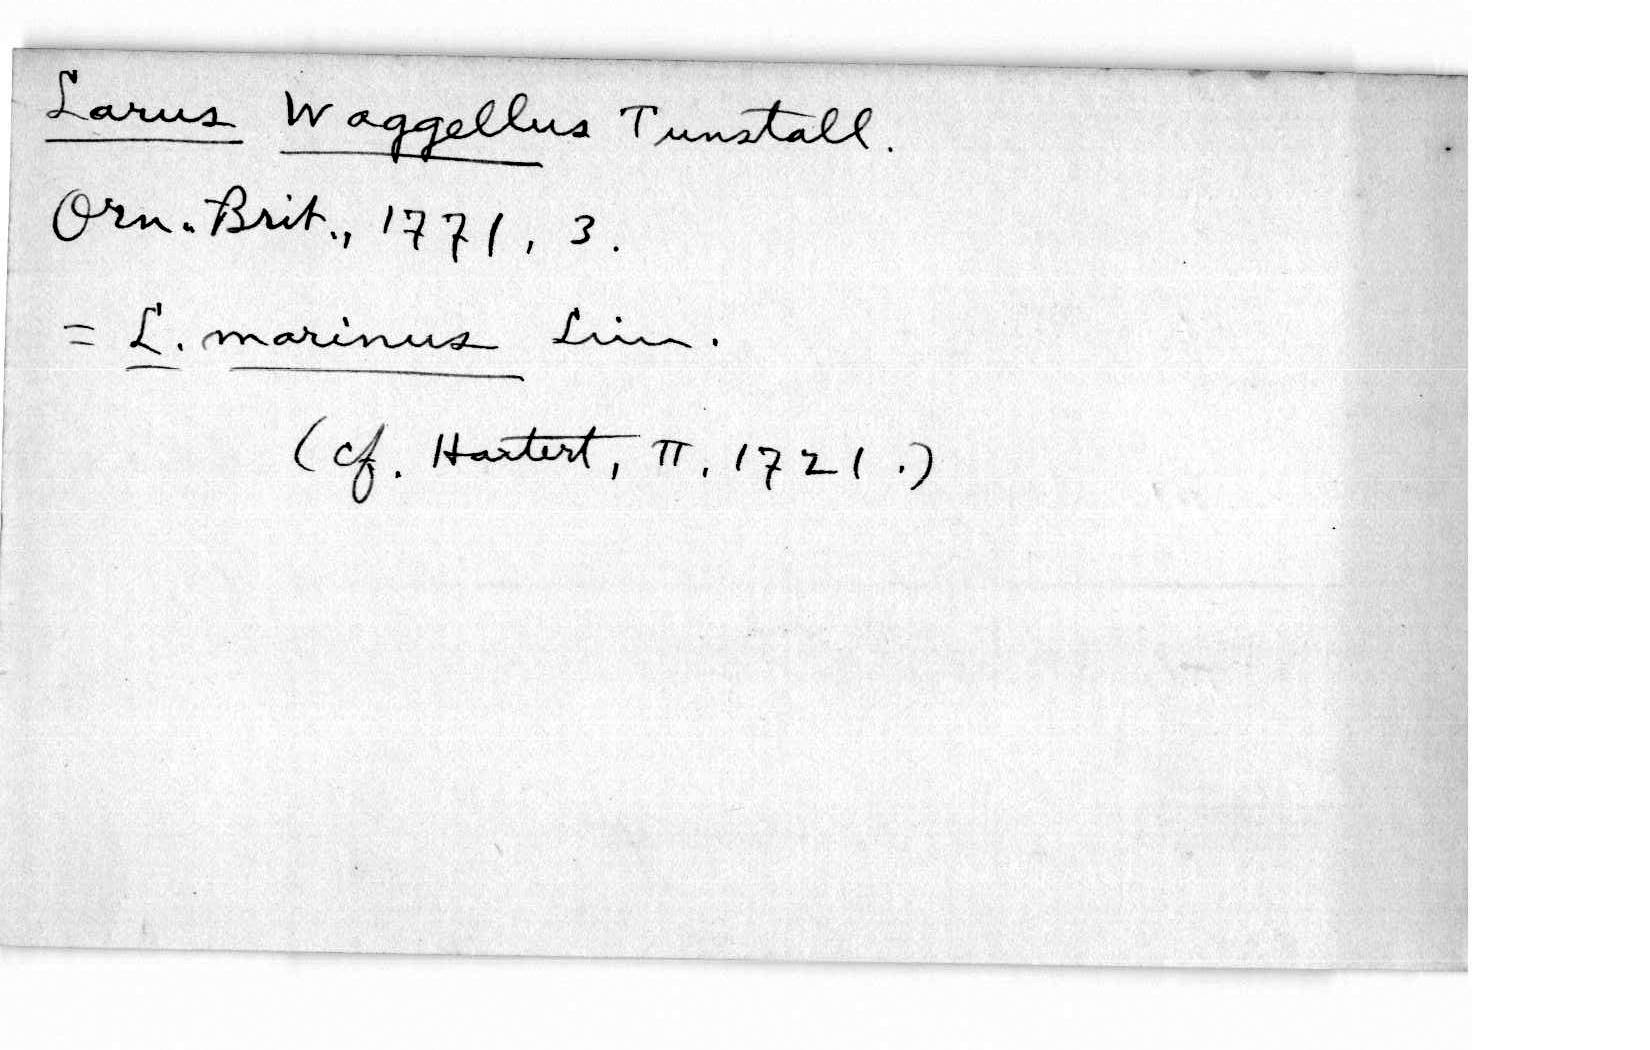 Larus Waggellus Tunstall.
Orn. Brit., 1771, 3.
= L. marinus Linn.
(cf. Hartert, II, 1721.)